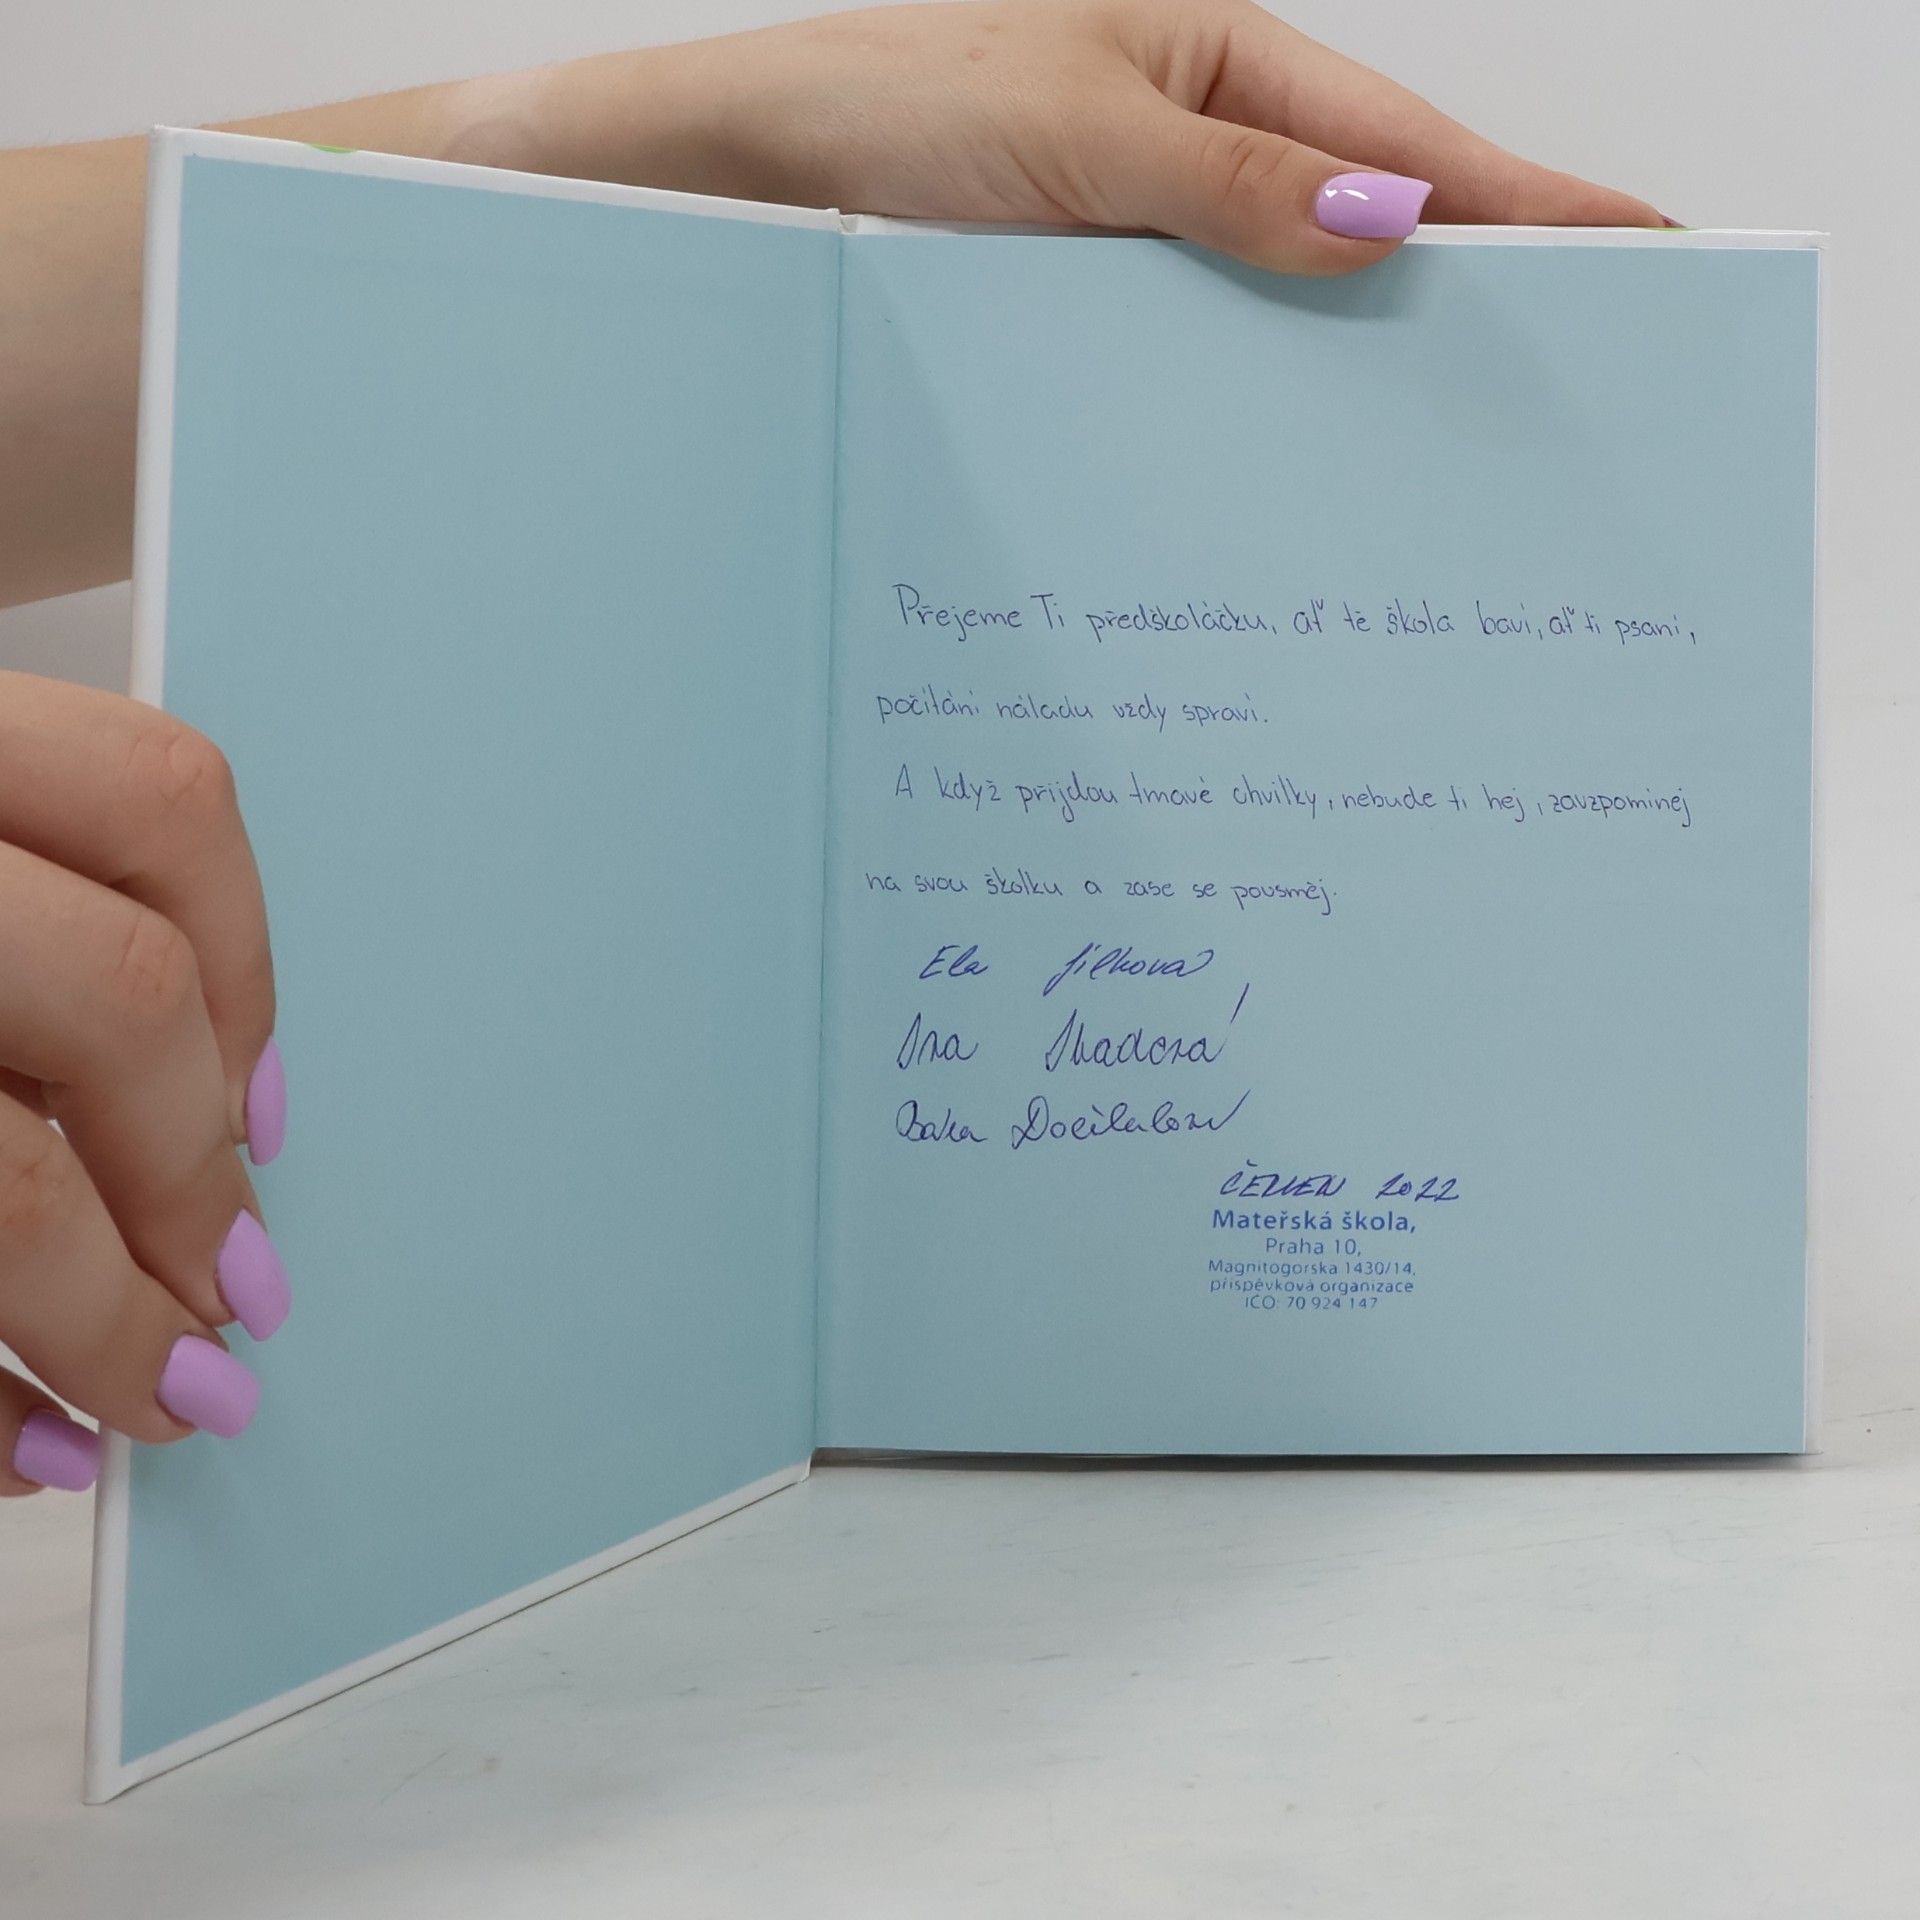 Přejeme Ti předškoláčku, ať tě škola baví, ať ti psaní,
počítání náladu vždy spraví.
A když přijdou tmavé chvilky, nebude ti hej, zavzpomínej
na svou školku a zase se pousměj.
Ela Jílková
ČERVEN 2022
Mateřská škola,
Praha 10,
Magnitogorska 1430/14,
příspěvková organizace
IČO: 70 924 147